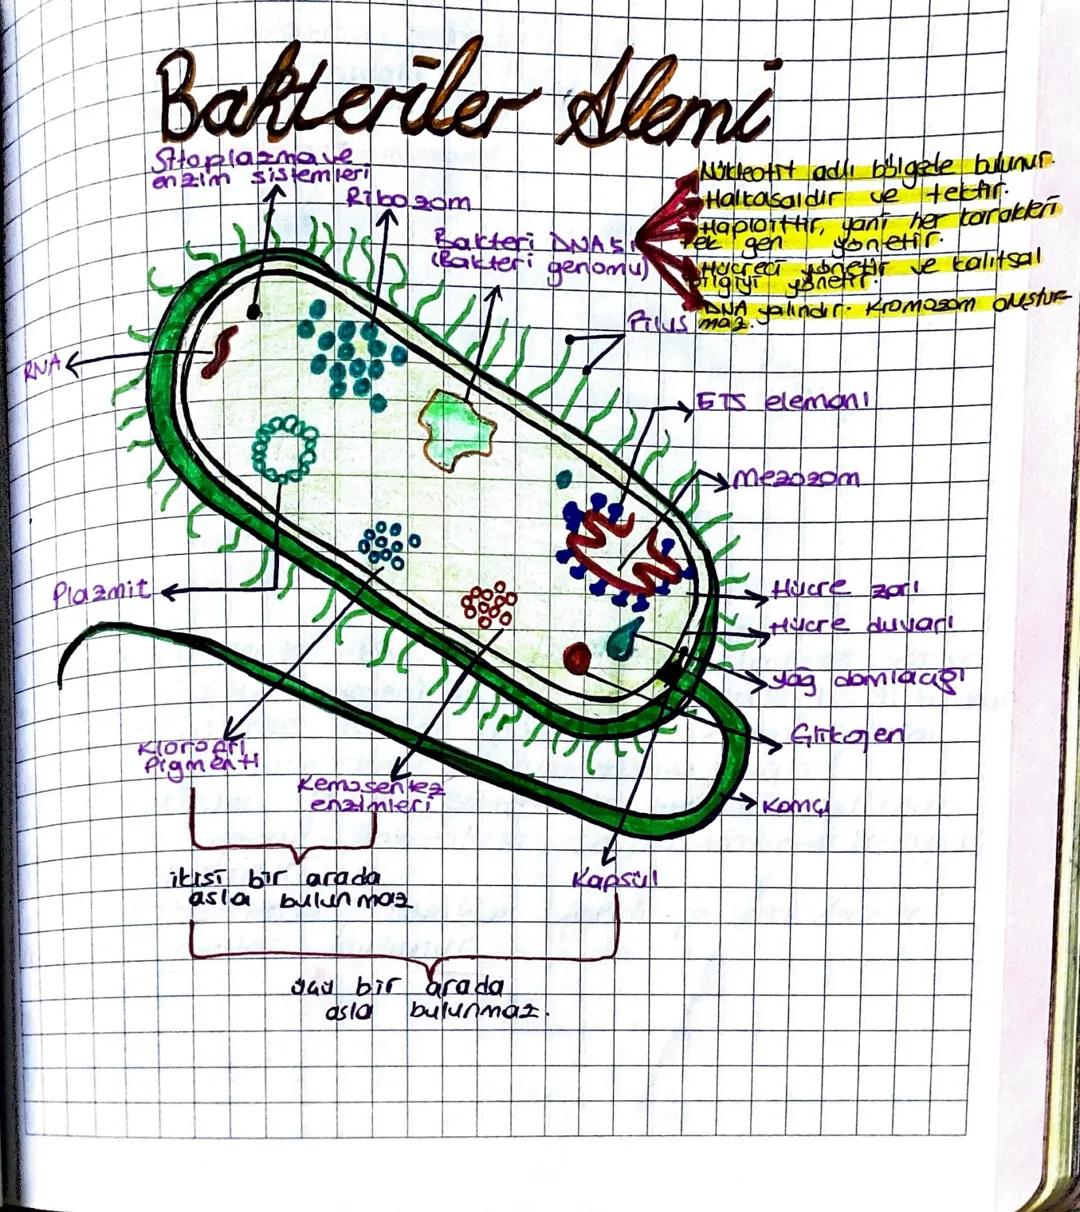 Bakteriler Alemi
Sitoplazma ve
enzim sistemleri
Ribozom
Bakteri DNA'sı
(Bakteri genomu)
Nükleotit adlı bölgede bulunur.
Halkasaldır ve tektir.
Haploittir, yani her karakteri
tek gen yönetir.
Hücreyi yönetir ve kalıtsal
bilgiyi yönetir.
DNA yalındır. Kromozom oluştur-
maz.
Pilus
RNA
ETS elemanı
Mezozom
Plazmit
Hücre zarı
Hücre duvarı
yağ damlacığı
Glikojen
Kamçı
Klorofil
Pigmenti
Kemosentez
enzimleri
Kapsül
ikisi bir arada
asla bulunmaz
üçü bir arada
asla bulunmaz.